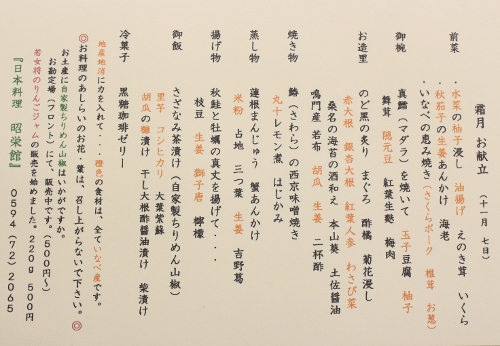 霜月 お献立 (十一月 七日)
前菜
・水菜の柚子浸し 油揚げ えのき茸 いくら
・秋茄子の生姜あんかけ 海老
・いなべの恵み焼き(さくらポーク 椎茸 お葱)
御椀
真鱈(マダラ)を焼いて 玉子豆腐 柚子
舞茸 隠元豆 紅葉生麩 梅肉
お造里
のど黒の炙り まぐろ 酢橘 菊花浸し
赤大根 銀杏大根 紅葉人参 わさび菜
桑名の海苔の酒和え 本山葵 土佐醤油
鳴門産 若布 胡瓜 生姜 二杯酢
焼き物
鰆(さわら)の西京味噌焼き
丸十レモン煮 はじかみ
蒸し物
蓮根まんじゅう 蟹あんかけ
米粉 占地 三つ葉 生姜 吉野葛
揚げ物
秋鮭と牡蠣の真丈を揚げて・・・
枝豆 生姜 獅子唐 檸檬
御飯
さざなみ茶漬け(自家製ちりめん山椒)
里芋 コシヒカリ 大葉紫蘇
胡瓜の糠漬け 干し大根酢醤油漬け 柴漬け
冷菓子
黒糖珈琲ゼリー
地産地消に力を入れて・・・橙色の食材は、全ていなべ産です。
◎お料理のあしらいのお花・葉は、召し上がらないで下さい。◎
お土産に自家製ちりめん山椒はいかがですか。
お勘定場(フロント)にて、販売中です。(500円〜)
若女将のりんごジャムの販売を始めました。220g 500円
『日本料理 昭栄館』 0594(72)2065